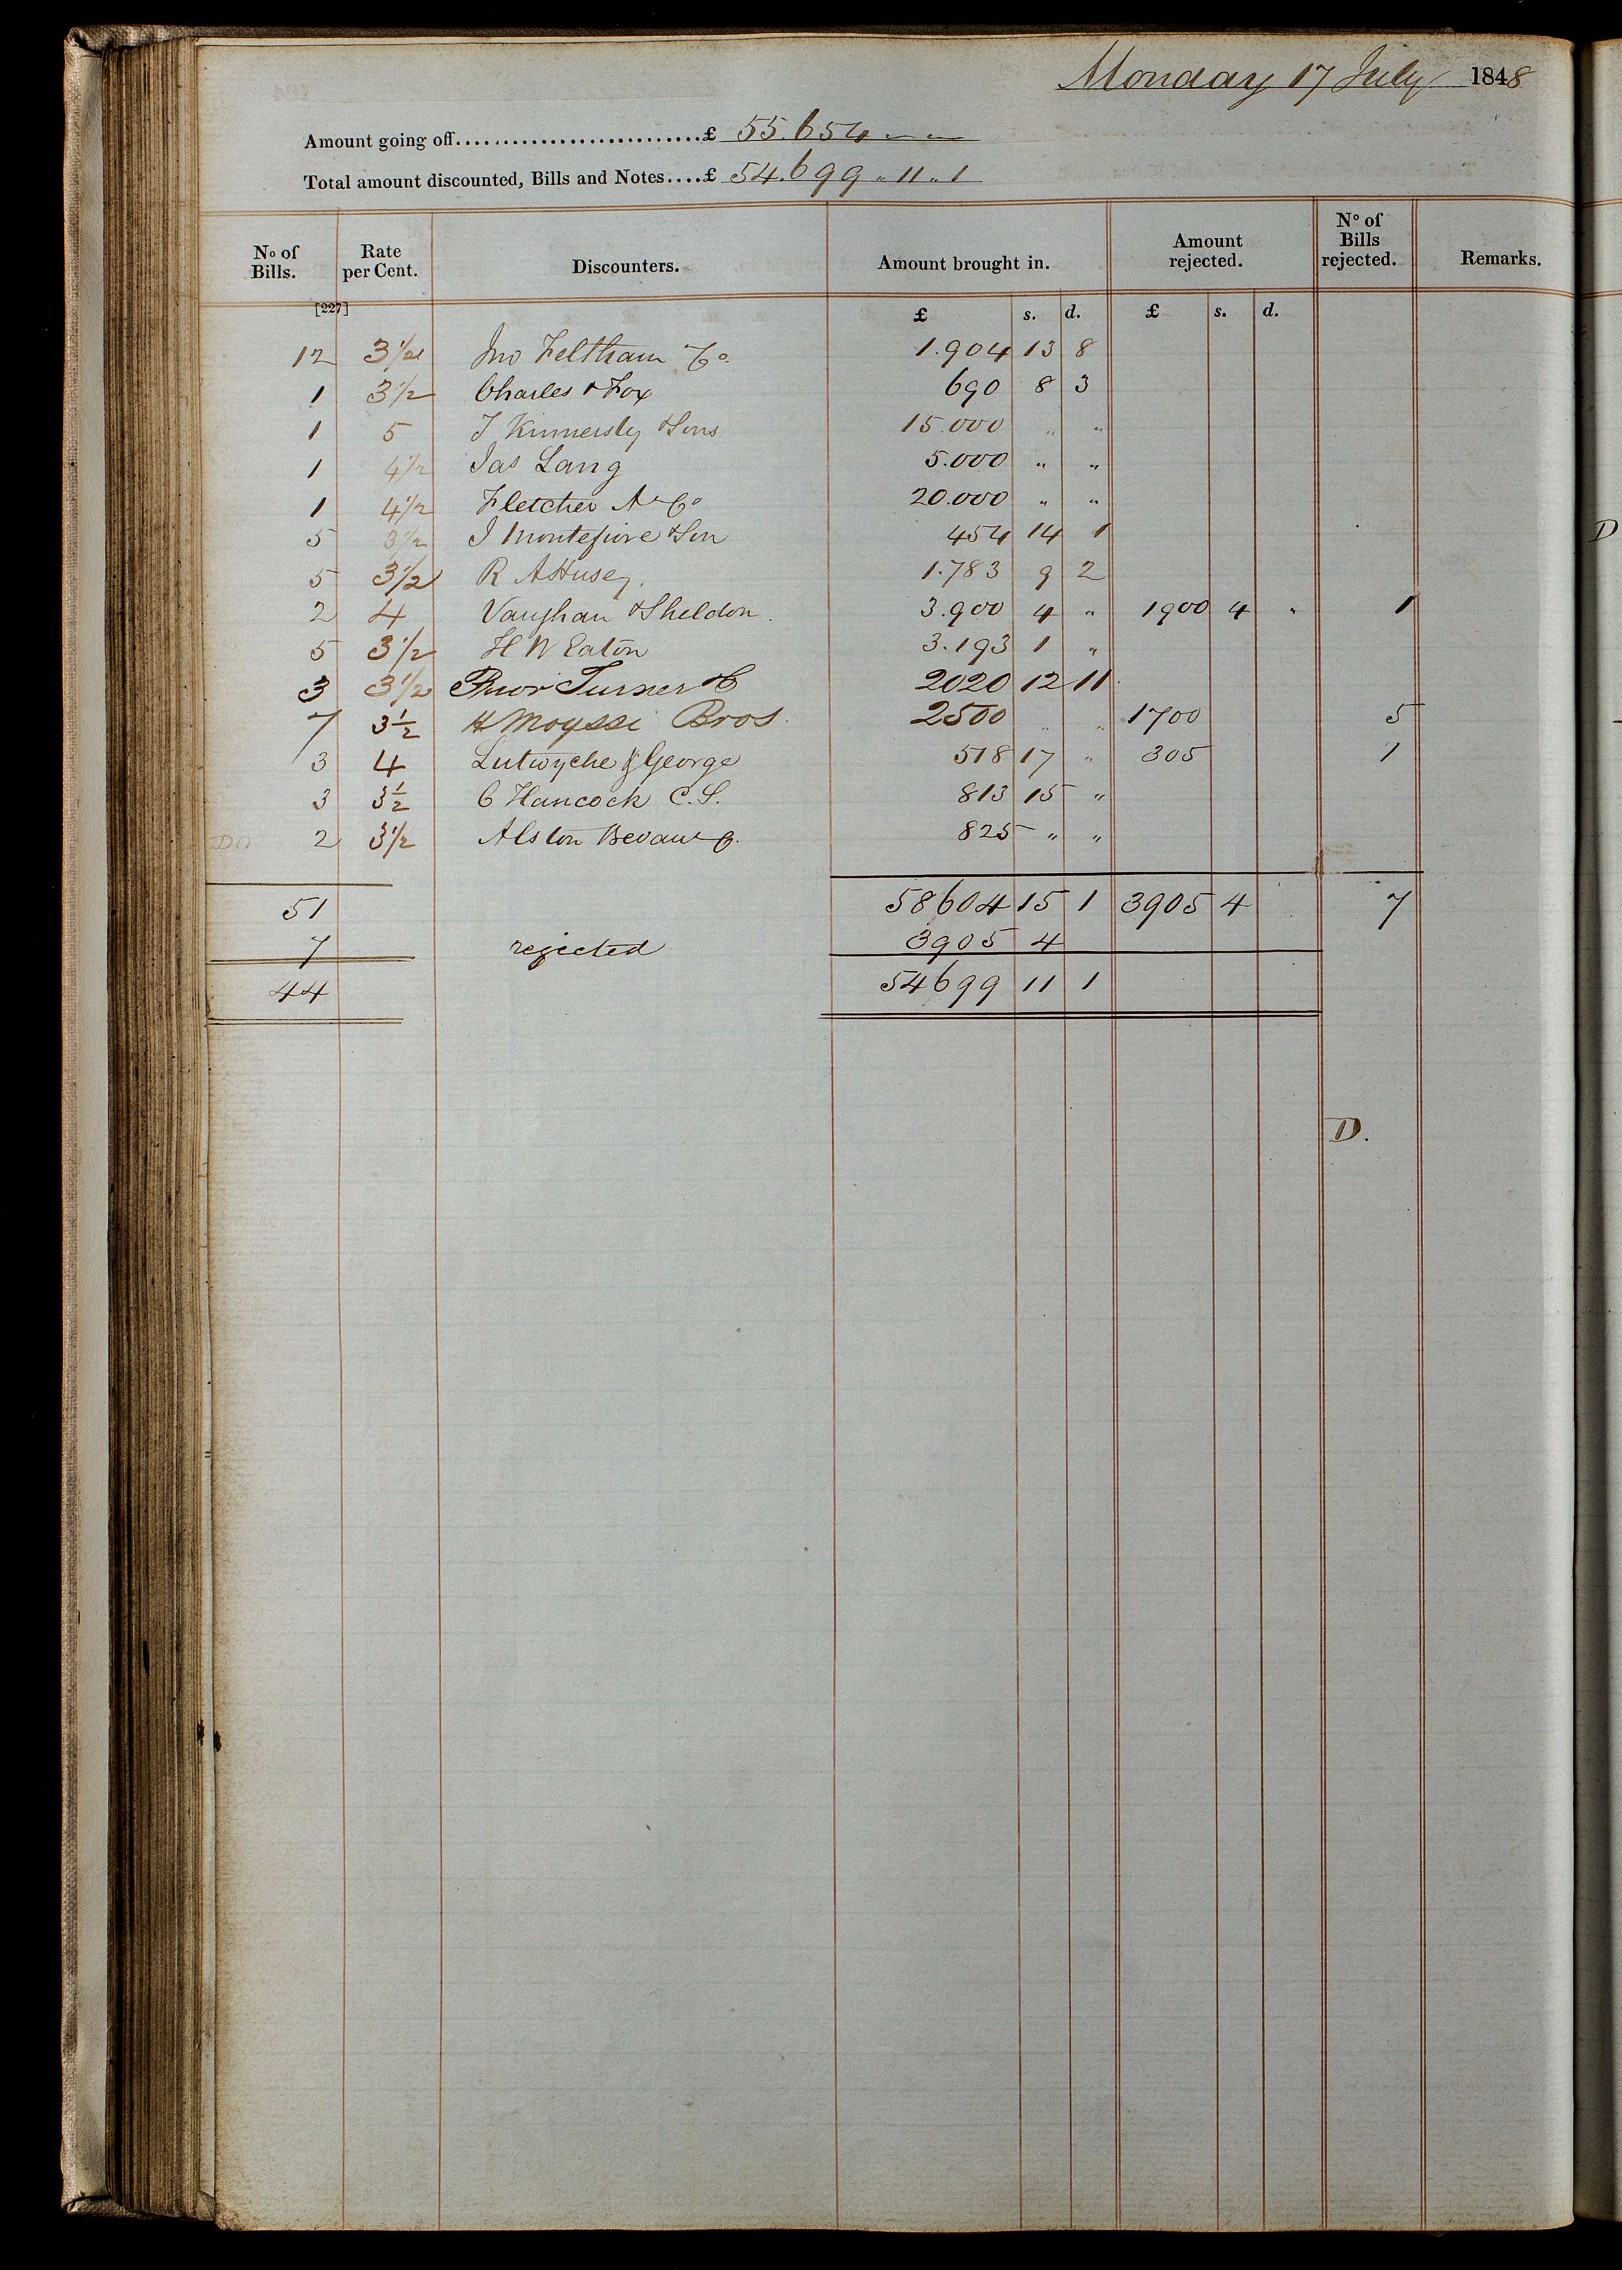 Monday 17 July 1848
Amount going off...........................£ 55.654 — —
Total amount discounted, Bills and Notes....£ 54.699 " 11 " 1
No of Bills. Rate per Cent. Discounters. Amount brought in. Amount rejected. No of Bills rejected. Remarks.
[227] £ s. d. £ s. d.
12 3 1/2 Jno Feltham & Co 1.904 13 8
1 3 1/2 Charles & Fox 690 8 3
1 5 T Kinnersly & Sons 15.000 " "
1 4 1/2 Jas Lang 5.000 " "
1 4 1/2 Fletcher A & Co 20.000 " "
5 3 1/2 J Montefiore & Son 454 14 1
5 3 1/2 R A Husey 1.783 9 2
2 4 Vaughan & Sheldon 3.900 4 " 1900 4 " 1
5 3 1/2 H W Eaton 3.193 1 "
3 3 1/2 Prior Turner & C 2020 12 11
7 3 1/2 Moyssi Bros 2500 " " 1700 5
3 4 Lutwyche & George 518 17 " 305 1
3 3 1/2 C Hancock C.S. 813 15 "
DO 2 3 1/2 Alston Bevan & C. 825 " "
51 58604 15 1 3905 4 7
7 rejected 3905 4
44 54699 11 1
D.
D